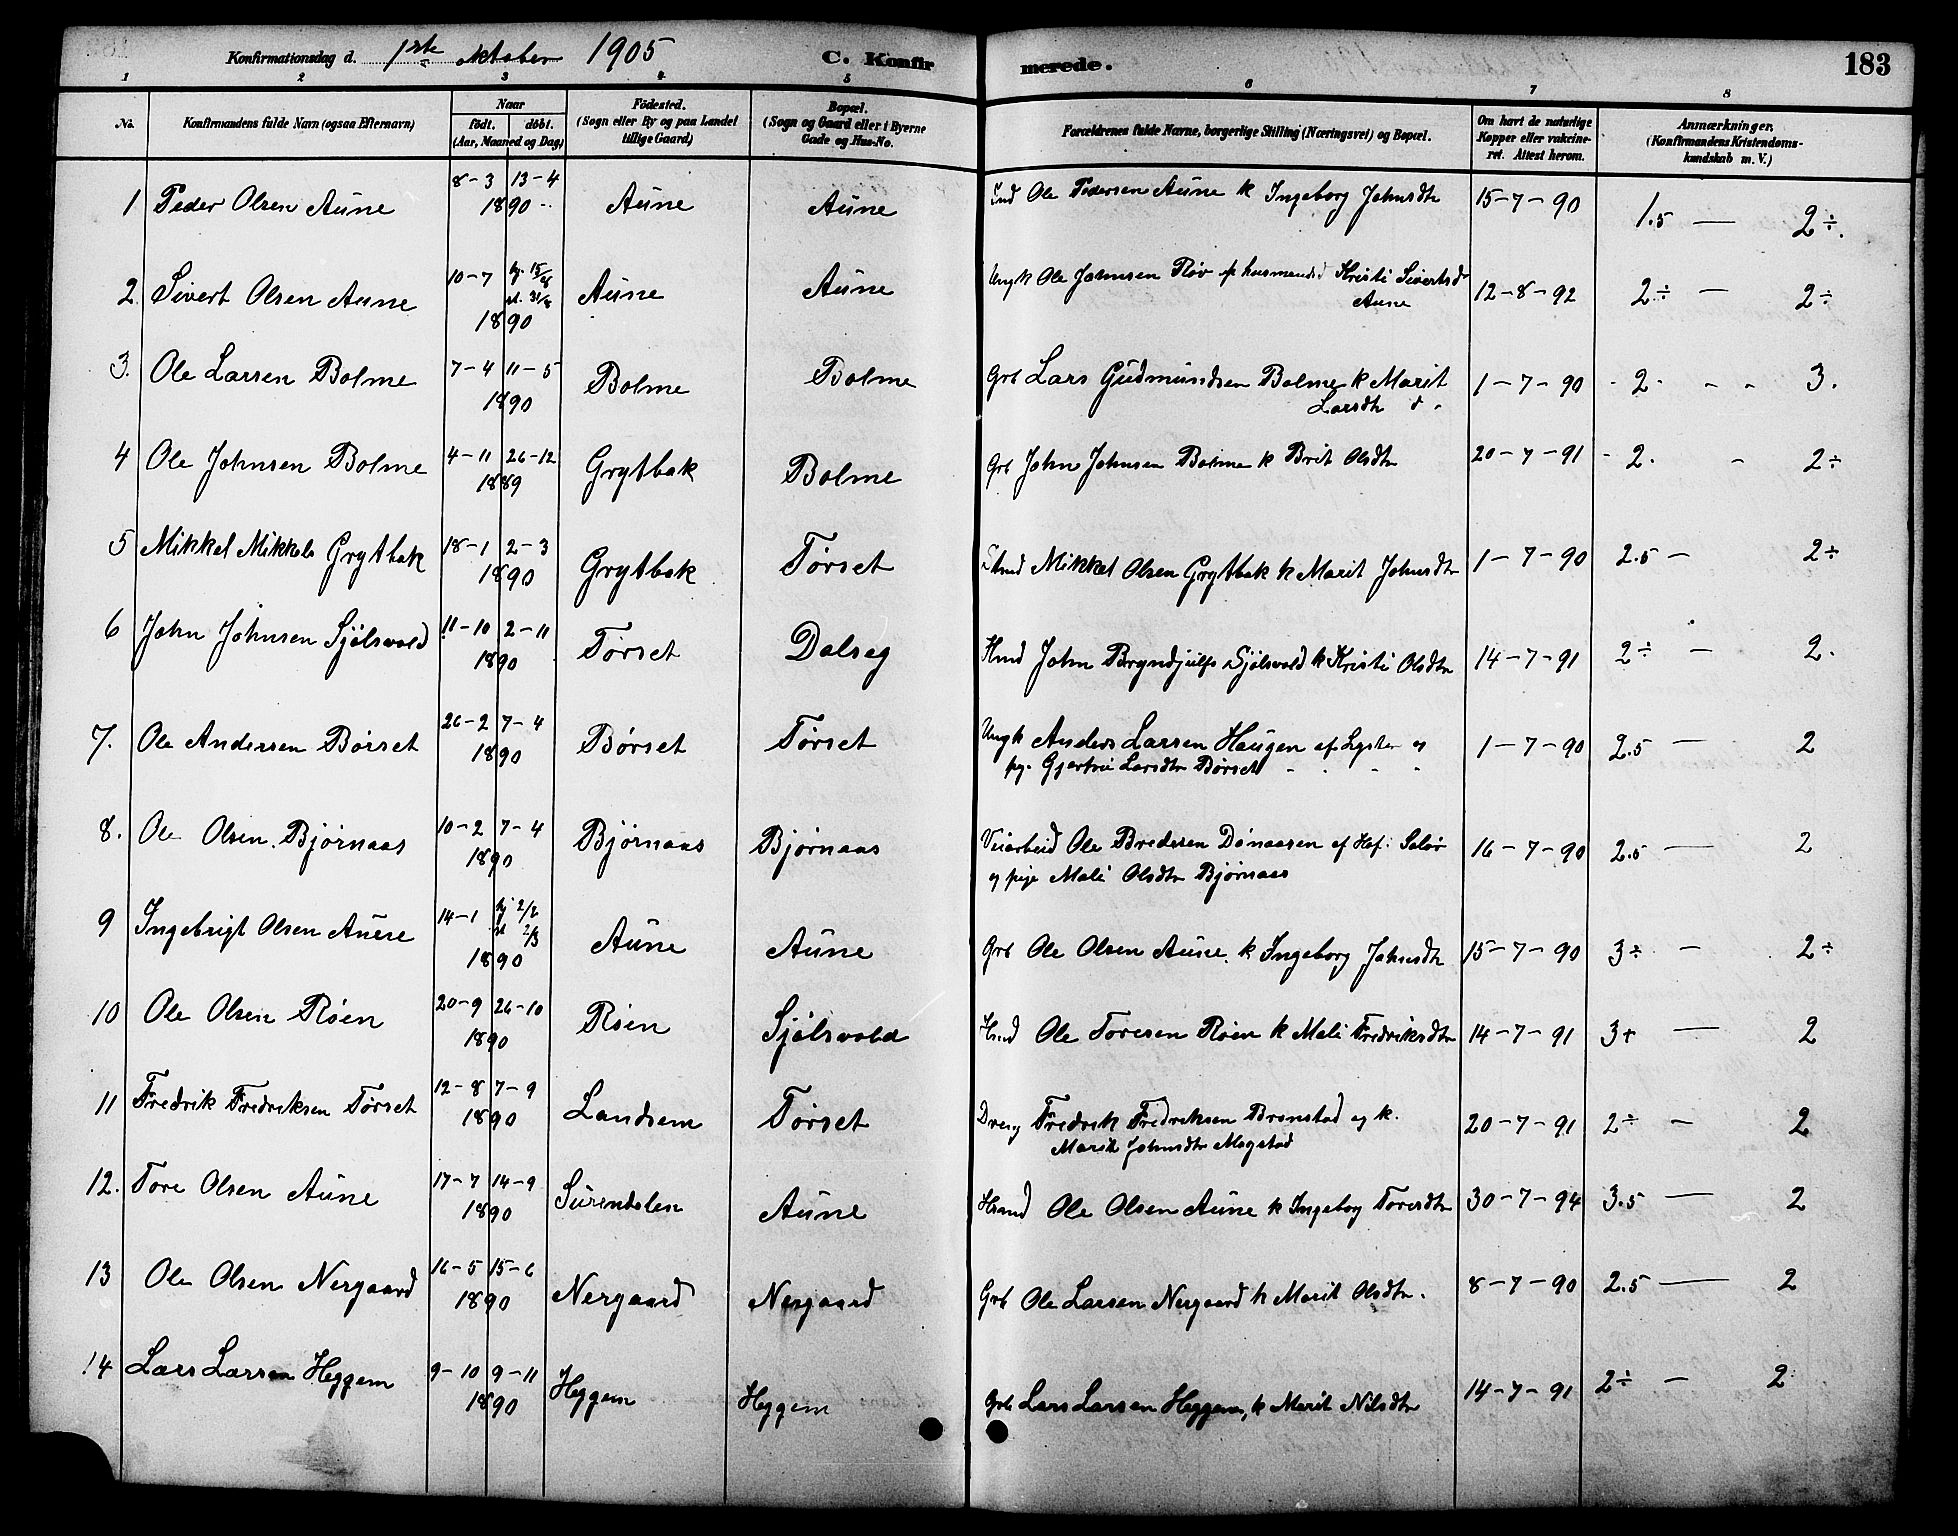 Konfirmationsdag d. 1ste oktober 1905 C. Konfirmerede. 183
1 2 3 4 5 6 7 8
No. Konfirmandens fulde Navn (ogsaa Efternavn) Naar født. døbt. (Aar, Maaned og Dag) Födested. (Sogn eller By og paa Landet tillige Gaard) Bopæl. (Sogn og Gaard eller i Byerne Gade og Hus-No. Forældrenes fulde Navne, borgerlige Stilling (Næringsvei) og Bopæl. Om havt de naturlige Kopper eller vakcineret. Attest herom. Anmærkninger. (Konfirmandens Kristendomskundskab m. V.)
1 Peder Olsen Aune 8-3 13-4 1890 Aune Aune Ole Pedersen Aune k Ingeborg Johnsdtr 15-7-90 1.5 — 2÷
2. Sivert Olsen Aune 10-7 1890 Aune Aune Ungk Ole Johnsen Røv p husmandsd Kristi Sivertsd Aune 12-8-92 2÷ — 2÷
3. Ole Larsen Bolme 7-4 11-5 1890 Bolme Bolme Grb Lars Gudmundsen Bolme k Marit Larsdtr 1-7-90 2 3.
4 Ole Johnsen Bolme 4-11 26-12 1889 Grytbak Bolme Grb John Johnsen Bolme k Brit Olsdtr 20-7-91 2. - 2÷
5 Mikkel Mikkels Grytbak 18-1 2-3 1890 Grytbak Tørset Mikkel Olsen Grytbak k Marit Johnsdtr 1-7-90 2.5 — 2÷
6 John Johnsen Sjølsvold 11-10 2-11 1890 Tørset Dalseg Hmd John Bryndjulfs Sjølsvold k Kristi Olsdtr 14-7-91 2÷ — 2.
7. Ole Andersen Børset 26-2 7-4 1890 Børset Tørset Ungk Anders Larsen Haugen af Lyster og pg. Gjertru Larsdtr Børset 1-7-90 2.5 — 2
8. Ole Olsen Bjørnaas 10-2 7-4 1890 Bjørnaas Bjørnaas Veiarbeid Ole Bredesen Dønaasen af Hof Solør og pige Mali Olsdtr Bjørnaas 16-7-90 2.5 — 2
9 Ingebrigt Olsen Aune 14-1 hj 2/2 2/3 1890 Aune Aune Grb Ole Olsen Aune k Ingeborg Johnsdtr 15-7-90 3÷ — 2÷
10 Ole Olsen Røen 20-9 26-10 1890 Røen Sjølsvold Hmd Ole Toresen Røen k Mali Fredriksdtr 14-7-91 3+ — 2
11 Fredrik Fredriksen Tørset 12-8 7-9 1890 Landsem Tørset Dreng Fredrik Fredriksen Brønstad og k. Marit Johnsdtr Mogstad 20-7-91 2÷ — 2
12. Tore Olsen Aune 17-7 14-9 1890 Surendalen Aune Hsmd Ole Olsen Aune k Ingebog Toresdtr 30-7-94 3.5 — 2
13 Ole Olsen Nergaard 16-5 15-6 1890 Nergaard Nergaard Grb Ole Larsen Nergaard k Marit Olsdtr. 8-7-90 2.5 — 2
14 Lars Larsen Heggem 9-10 9-11 1890 Heggem Heggem Grb Lars Larsen Heggem, k Marit Nilsdtr 14-7-91 2÷ — 2